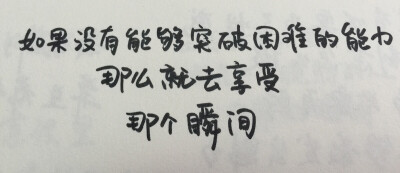 如果没有能够突破困难的能力
那么就去享受
那个瞬间